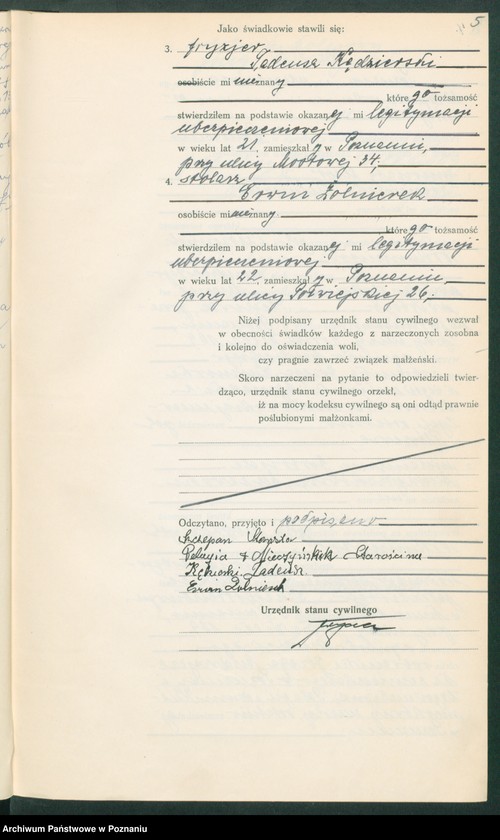 5
Jako świadkowie stawili się:
3. fryzjer
Tadeusz Kędzierski
osobiście mi nieznany
którego tożsamość
stwierdziłem na podstawie okazanej mi legitymacji
ubezpieczeniowej
w wieku lat 21, zamieszkały w Poznaniu,
przy ulicy Mostowej 34,
4. stolarz
Erwin Żołnierek
osobiście mi nieznany
którego tożsamość
stwierdziłem na podstawie okazanej mi legitymacji
ubezpieczeniowej
w wieku lat 22, zamieszkały w Poznaniu,
przy ulicy Półwiejskiej 26,
Niżej podpisany urzędnik stanu cywilnego wezwał
w obecności świadków każdego z narzeczonych zosobna
i kolejno do oświadczenia woli,
czy pragnie zawrzeć związek małżeński.
Skoro narzeczeni na pytanie to odpowiedzieli twier-
dząco, urzędnik stanu cywilnego orzekł,
iż na mocy kodeksu cywilnego są oni odtąd prawnie
poślubionymi małżonkami.
Odczytano, przyjęto i podpisano
Szczepan
Pelagja
Kędzierski Tadeusz
Erwin Żołnierek
Urzędnik stanu cywilnego
Archiwum Państwowe w Poznaniu